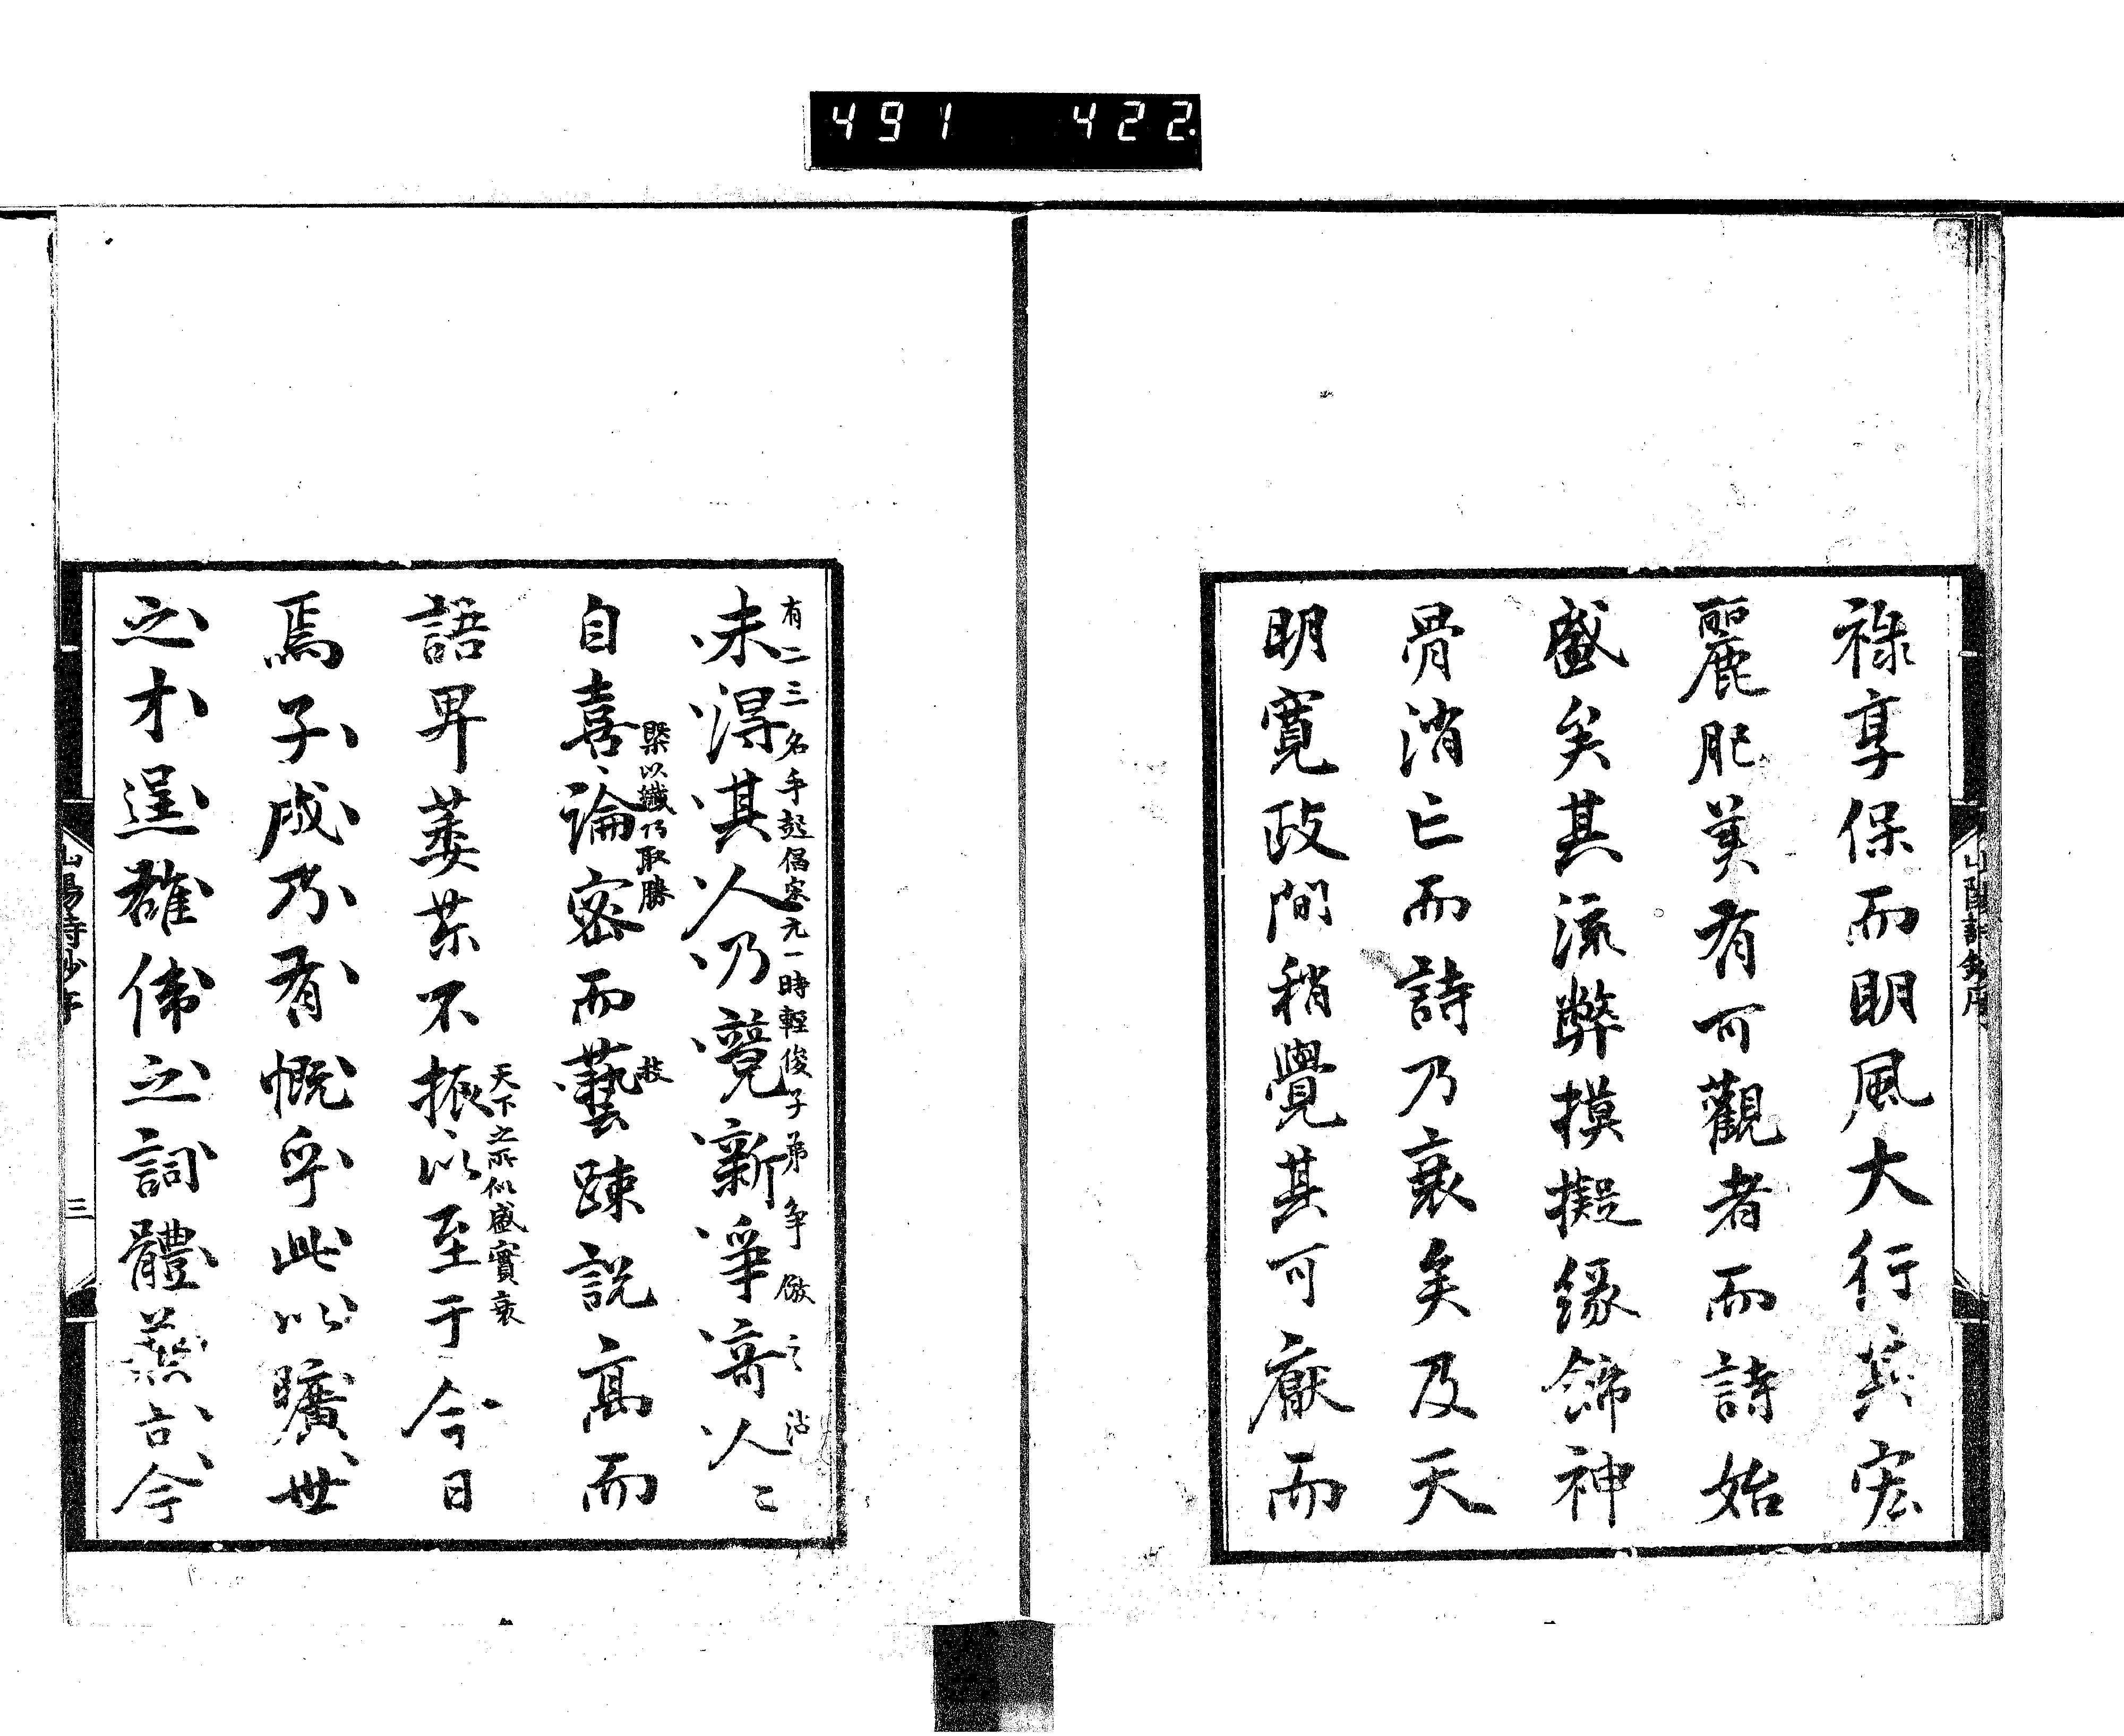 491 422
祿享保而明風大行其宏
麗肥美有可觀者而詩始
盛矣其流弊摸擬緣飾神
骨消亡而詩乃衰矣及天
明寬政間稍覺其可厭而
有二三名手起倡宋元一時輕俊子弟争倣之沾
未得其人乃競新爭奇人〻
槩以纖巧取勝
技
自喜論密而藝踈説高而
天下之所似盛實衰
語卑萎苶不振以至于今日
焉子成乃有慨乎此以曠世
之才逞雄偉之詞體燕古今
山陽詩鈔序
三